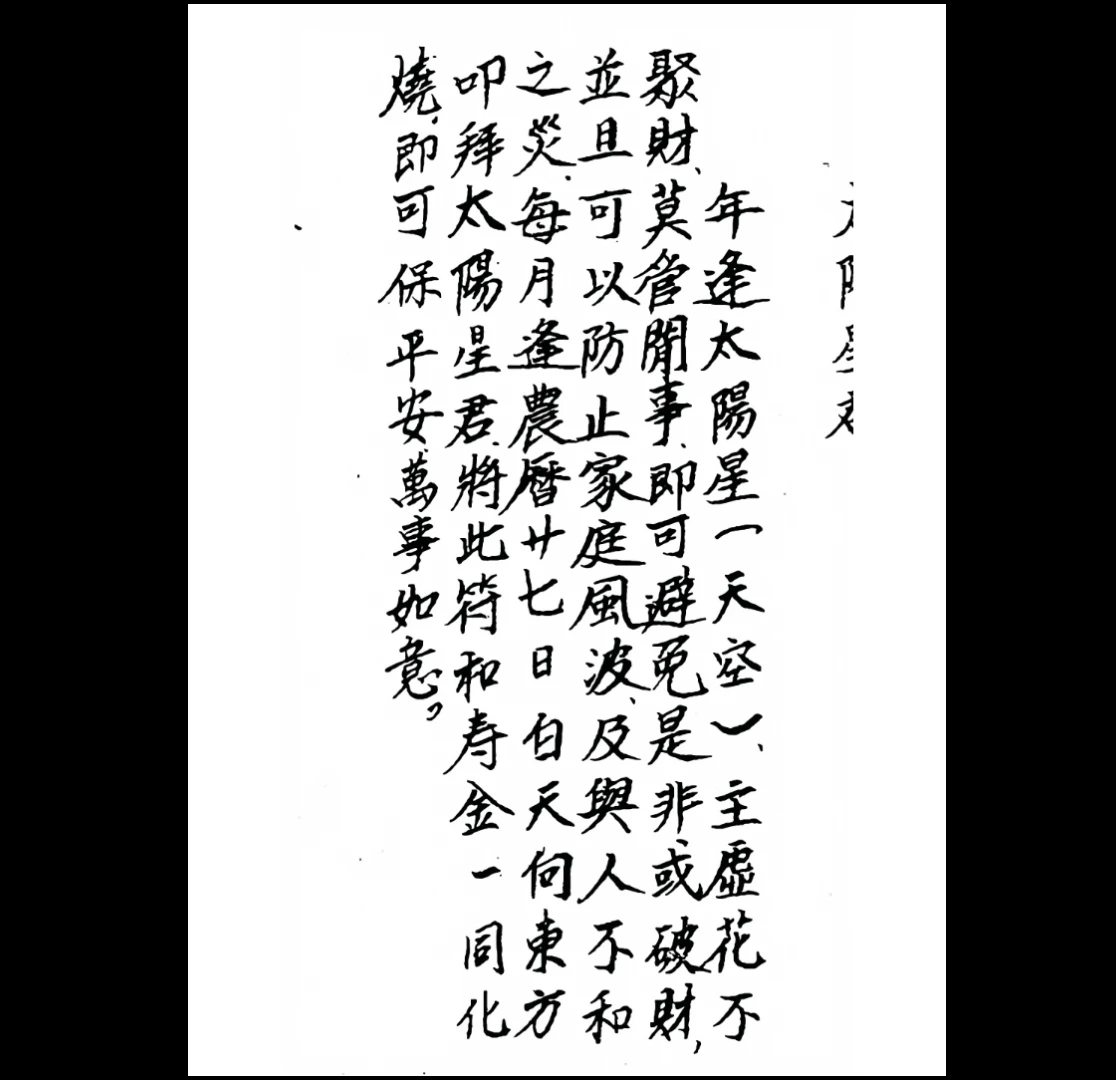 太陽星君
年逢太陽星（天空）、主虛花不
聚財、莫管閒事、即可避免是非、或破財，
並且可以防止家庭風波、及與人不和
之災、每月逢農曆廿七日白天向東方
叩拜太陽星君、將此符和寿金一同化
燒、即可保平安、萬事如意。